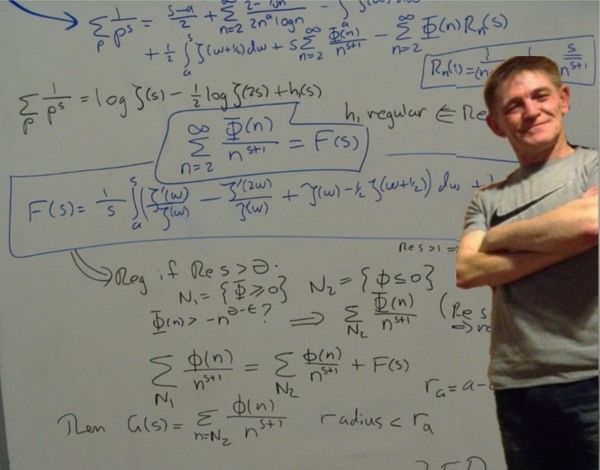 ∑_p 1/p^s = s-a/2 + ∑_{n=2}^∞
+ ½ ∫_a^s ζ(w+½)dw + s∑_{n=2}^∞ Φ(n)/n^{s+1} - ∑_{n=2}^∞ Φ(n)R_n(s)
R_n(s)=
∑_p 1/p^s = log ζ(s) - ½ log ζ(2s) + h(s)
h, regular ∈ Re
∑_{n=2}^∞ Φ(n)/n^{s+1} = F(s)
F(s) = 1/s ∫_a^s (ζ'(w)/ζ(w) - ζ'(2w)/ζ(w) + ζ(w) - ½ ζ(w+½)) dw +
Res>1 =
⇒ Reg if Re s > ∂.
N₁ = {Φ ≥ 0} N₂ = {Φ ≤ 0}
Φ(n) > -n^{∂-ε}? ⇒ ∑_{N₂} Φ(n)/n^{s+1} (Re s
∑_{N₁} Φ(n)/n^{s+1} = ∑_{N₂} Φ(n)/n^{s+1} + F(s)
r_a = a-
Then G(s) = ∑_{n=N₂} Φ(n)/n^{s+1} radius < r_a